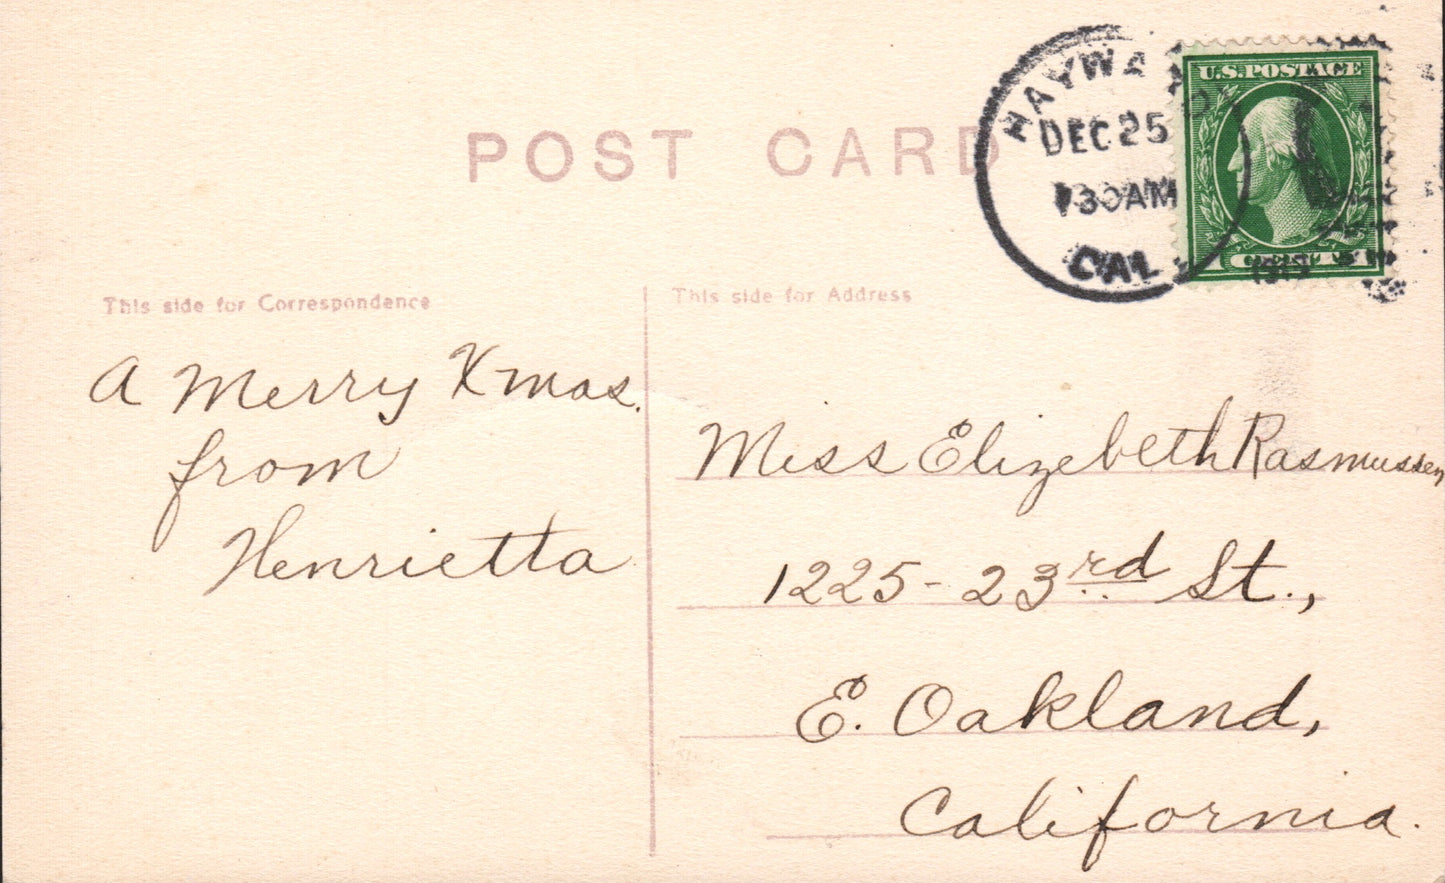 POST CARD
HAYWA
DEC 25
30 AM
CAL
U.S. POSTAGE
1
This side for Correspondence
This side for Address
A Merry Xmas.
from
Henrietta
Miss Elizebeth Rasmussen
1225 - 23rd St.,
E. Oakland,
California.